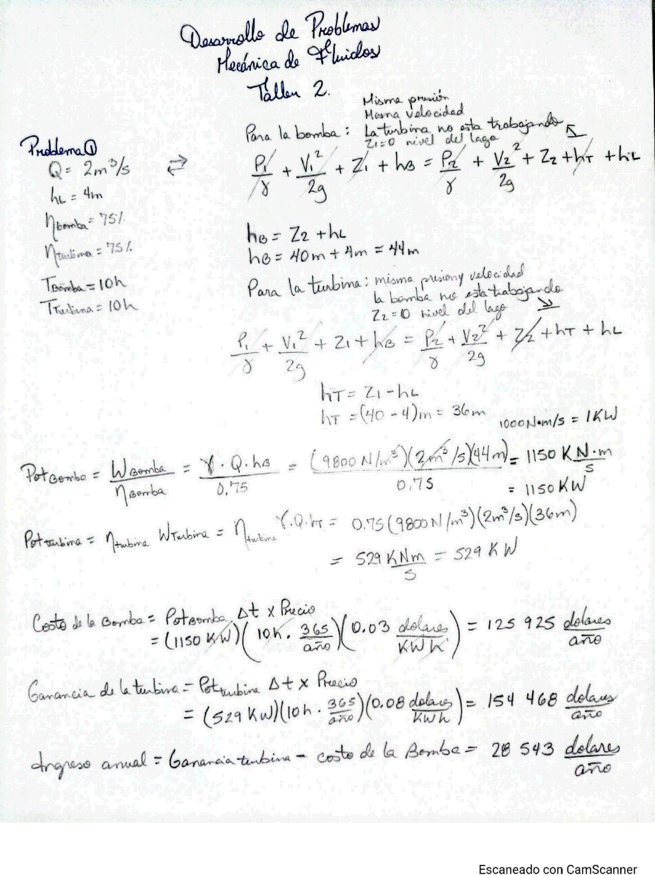 Desarrollo de Problemas
Mecánica de Fluidos
Taller 2.
Problema ①
Q = 2m³/s
hL = 4m
ηbomba = 75%
ηturbina = 75%
Tbomba = 10h
Tturbina = 10h
Para la bomba: Misma presión
Misma velocidad
La turbina no esta trabajando
Z1=0 nivel del lago
P1/γ + V1²/2g + Z1 + hB = P2/γ + V2²/2g + Z2 + hT + hL
hB = Z2 + hL
hB = 40m + 4m = 44m
Para la turbina: misma presion y velocidad
la bomba no esta trabajando
Z2=0 nivel del lago
P1/γ + V1²/2g + Z1 + hB = P2/γ + V2²/2g + Z2 + hT + hL
hT = Z1 - hL
hT = (40 - 4)m = 36m
1000 N·m/s = 1KW
Pot Bomba = WBomba/ηBomba = γ·Q·hB/0,75 = (9800 N/m³)(2m³/s)(44m)/0,75 = 1150 KN·m/s
= 1150 KW
Pot turbina = ηturbina Wturbina = ηturbina γ·Q·hT = 0.75(9800N/m³)(2m³/s)(36m)
= 529 KNm/s = 529 KW
Costo de la Bomba = PotBomba Δt x Precio
= (1150 KW)(10h · 365/año)(0.03 dolares/KWh) = 125 925 dolares/año
Ganancia de la turbina = Potturbina Δt x Precio
= (529 KW)(10h · 365/año)(0.08 dolares/KWh) = 154 468 dolares/año
Ingreso anual = Ganancia turbina - costo de la Bomba = 28 543 dolares/año
Escaneado con CamScanner